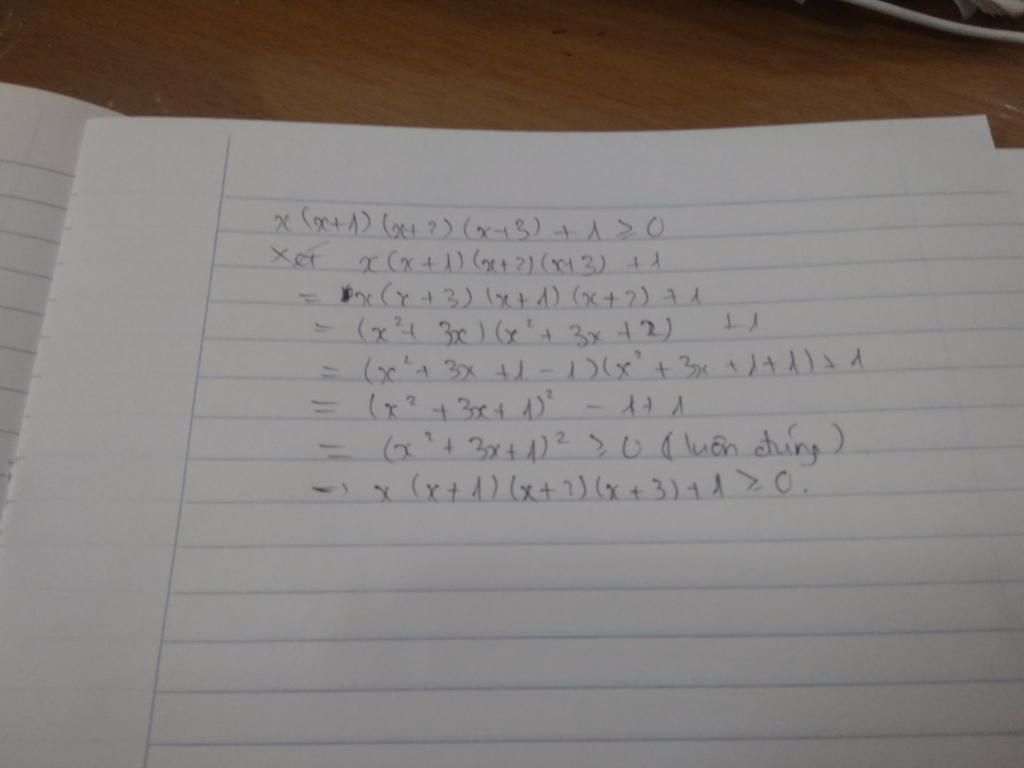 x(x+1)(x+2)(x+3)+1 ≥ 0
Xét x(x+1)(x+2)(x+3) +1
= x(x+3)(x+1)(x+2)+1
= (x²+3x)(x²+3x+2) +1
= (x²+3x+1-1)(x²+3x+1+1)+1
= (x²+3x+1)² - 1+1
= (x²+3x+1)² ≥ 0 (luôn đúng)
→ x(x+1)(x+2)(x+3)+1 ≥ 0.